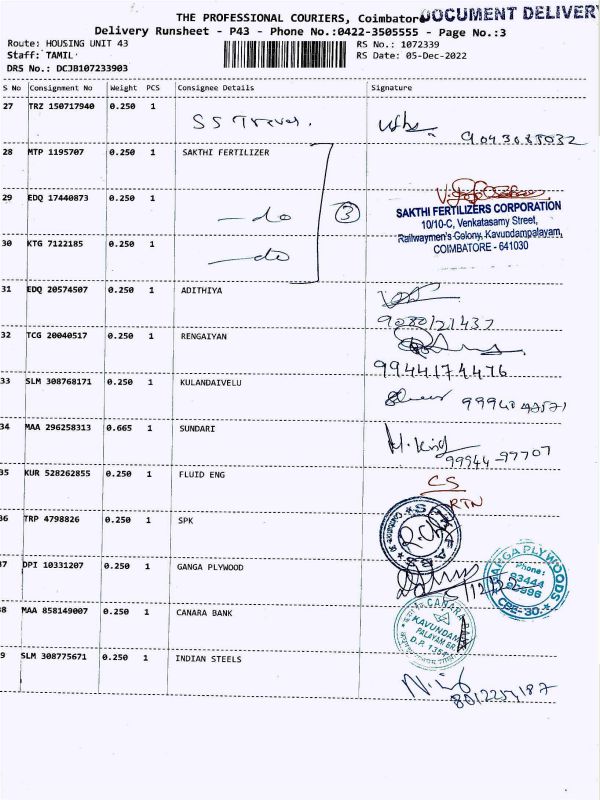 THE PROFESSIONAL COURIERS, Coimbator
DOCUMENT DELIVERY
Delivery Runsheet - P43 - Phone No.:0422-3505555 - Page No.:3
Route: HOUSING UNIT 43
RS No.: 1072339
Staff: TAMIL
RS Date: 05-Dec-2022
DRS No.: DCJB107233903
S No Consignment No Weight PCS Consignee Details Signature
27 TRZ 150717940 0.250 1 S S Traver.
28 MTP 1195707 0.250 1 SAKTHI FERTILIZER
29 EDQ 17440873 0.250 1 - do
3
SAKTHI FERTILIZERS CORPORATION
10/10-C, Venkatasamy Street,
Railwaymen's Colony, Kavundampalayam,
COIMBATORE - 641030
30 KTG 7122185 0.250 1 - do
31 EDQ 20574507 0.250 1 ADITHIYA
32 TCG 20040517 0.250 1 RENGAIYAN
9944174476
33 SLM 308768171 0.250 1 KULANDAIVELU
34 MAA 296258313 0.665 1 SUNDARI
99944-97707
35 KUR 528262855 0.250 1 FLUID ENG CS
RTN
36 TRP 4798826 0.250 1 SPK
37 DPI 10331207 0.250 1 GANGA PLYWOOD
GANGA PLYWOODS
Phone:
93444
CBE-30.
38 MAA 858149007 0.250 1 CANARA BANK
CANARA
KAVUNDAM
PALAYAM BR
39 SLM 308775671 0.250 1 INDIAN STEELS